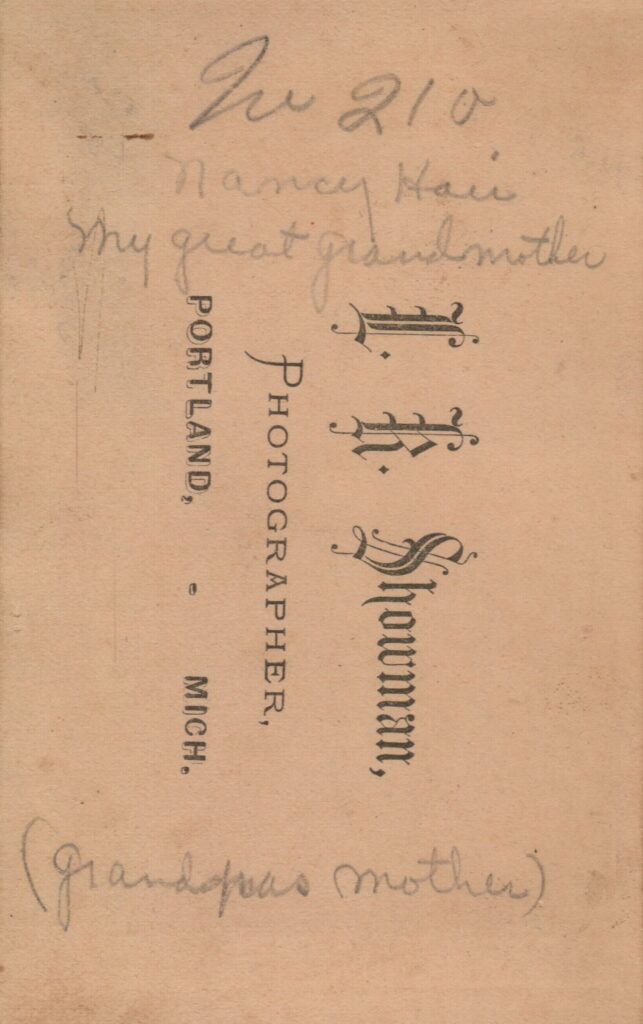 No 210
Nancy Hair
My great grandmother
L. K. Showman,
PHOTOGRAPHER,
PORTLAND, - MICH.
(grandpas mother)